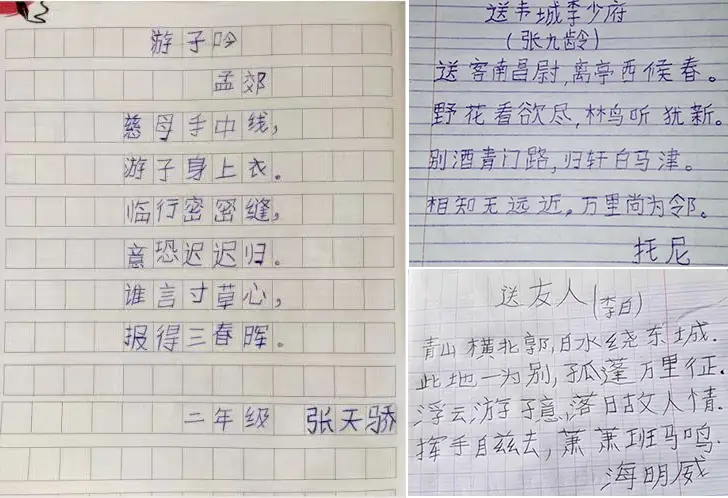 游子吟
孟郊
慈母手中线，
游子身上衣。
临行密密缝，
意恐迟迟归。
谁言寸草心，
报得三春晖。
二年级 张天骄
送韦城李少府
（张九龄）
送客南昌尉，离亭西候春。
野花看欲尽，林鸟听犹新。
别酒青门路，归轩白马津。
相知无远近，万里尚为邻。
托尼
送友人（李白）
青山横北郭，白水绕东城．
此地一为别，孤蓬万里征．
浮云游子意，落日故人情．
挥手自兹去，萧萧班马鸣．
海明威